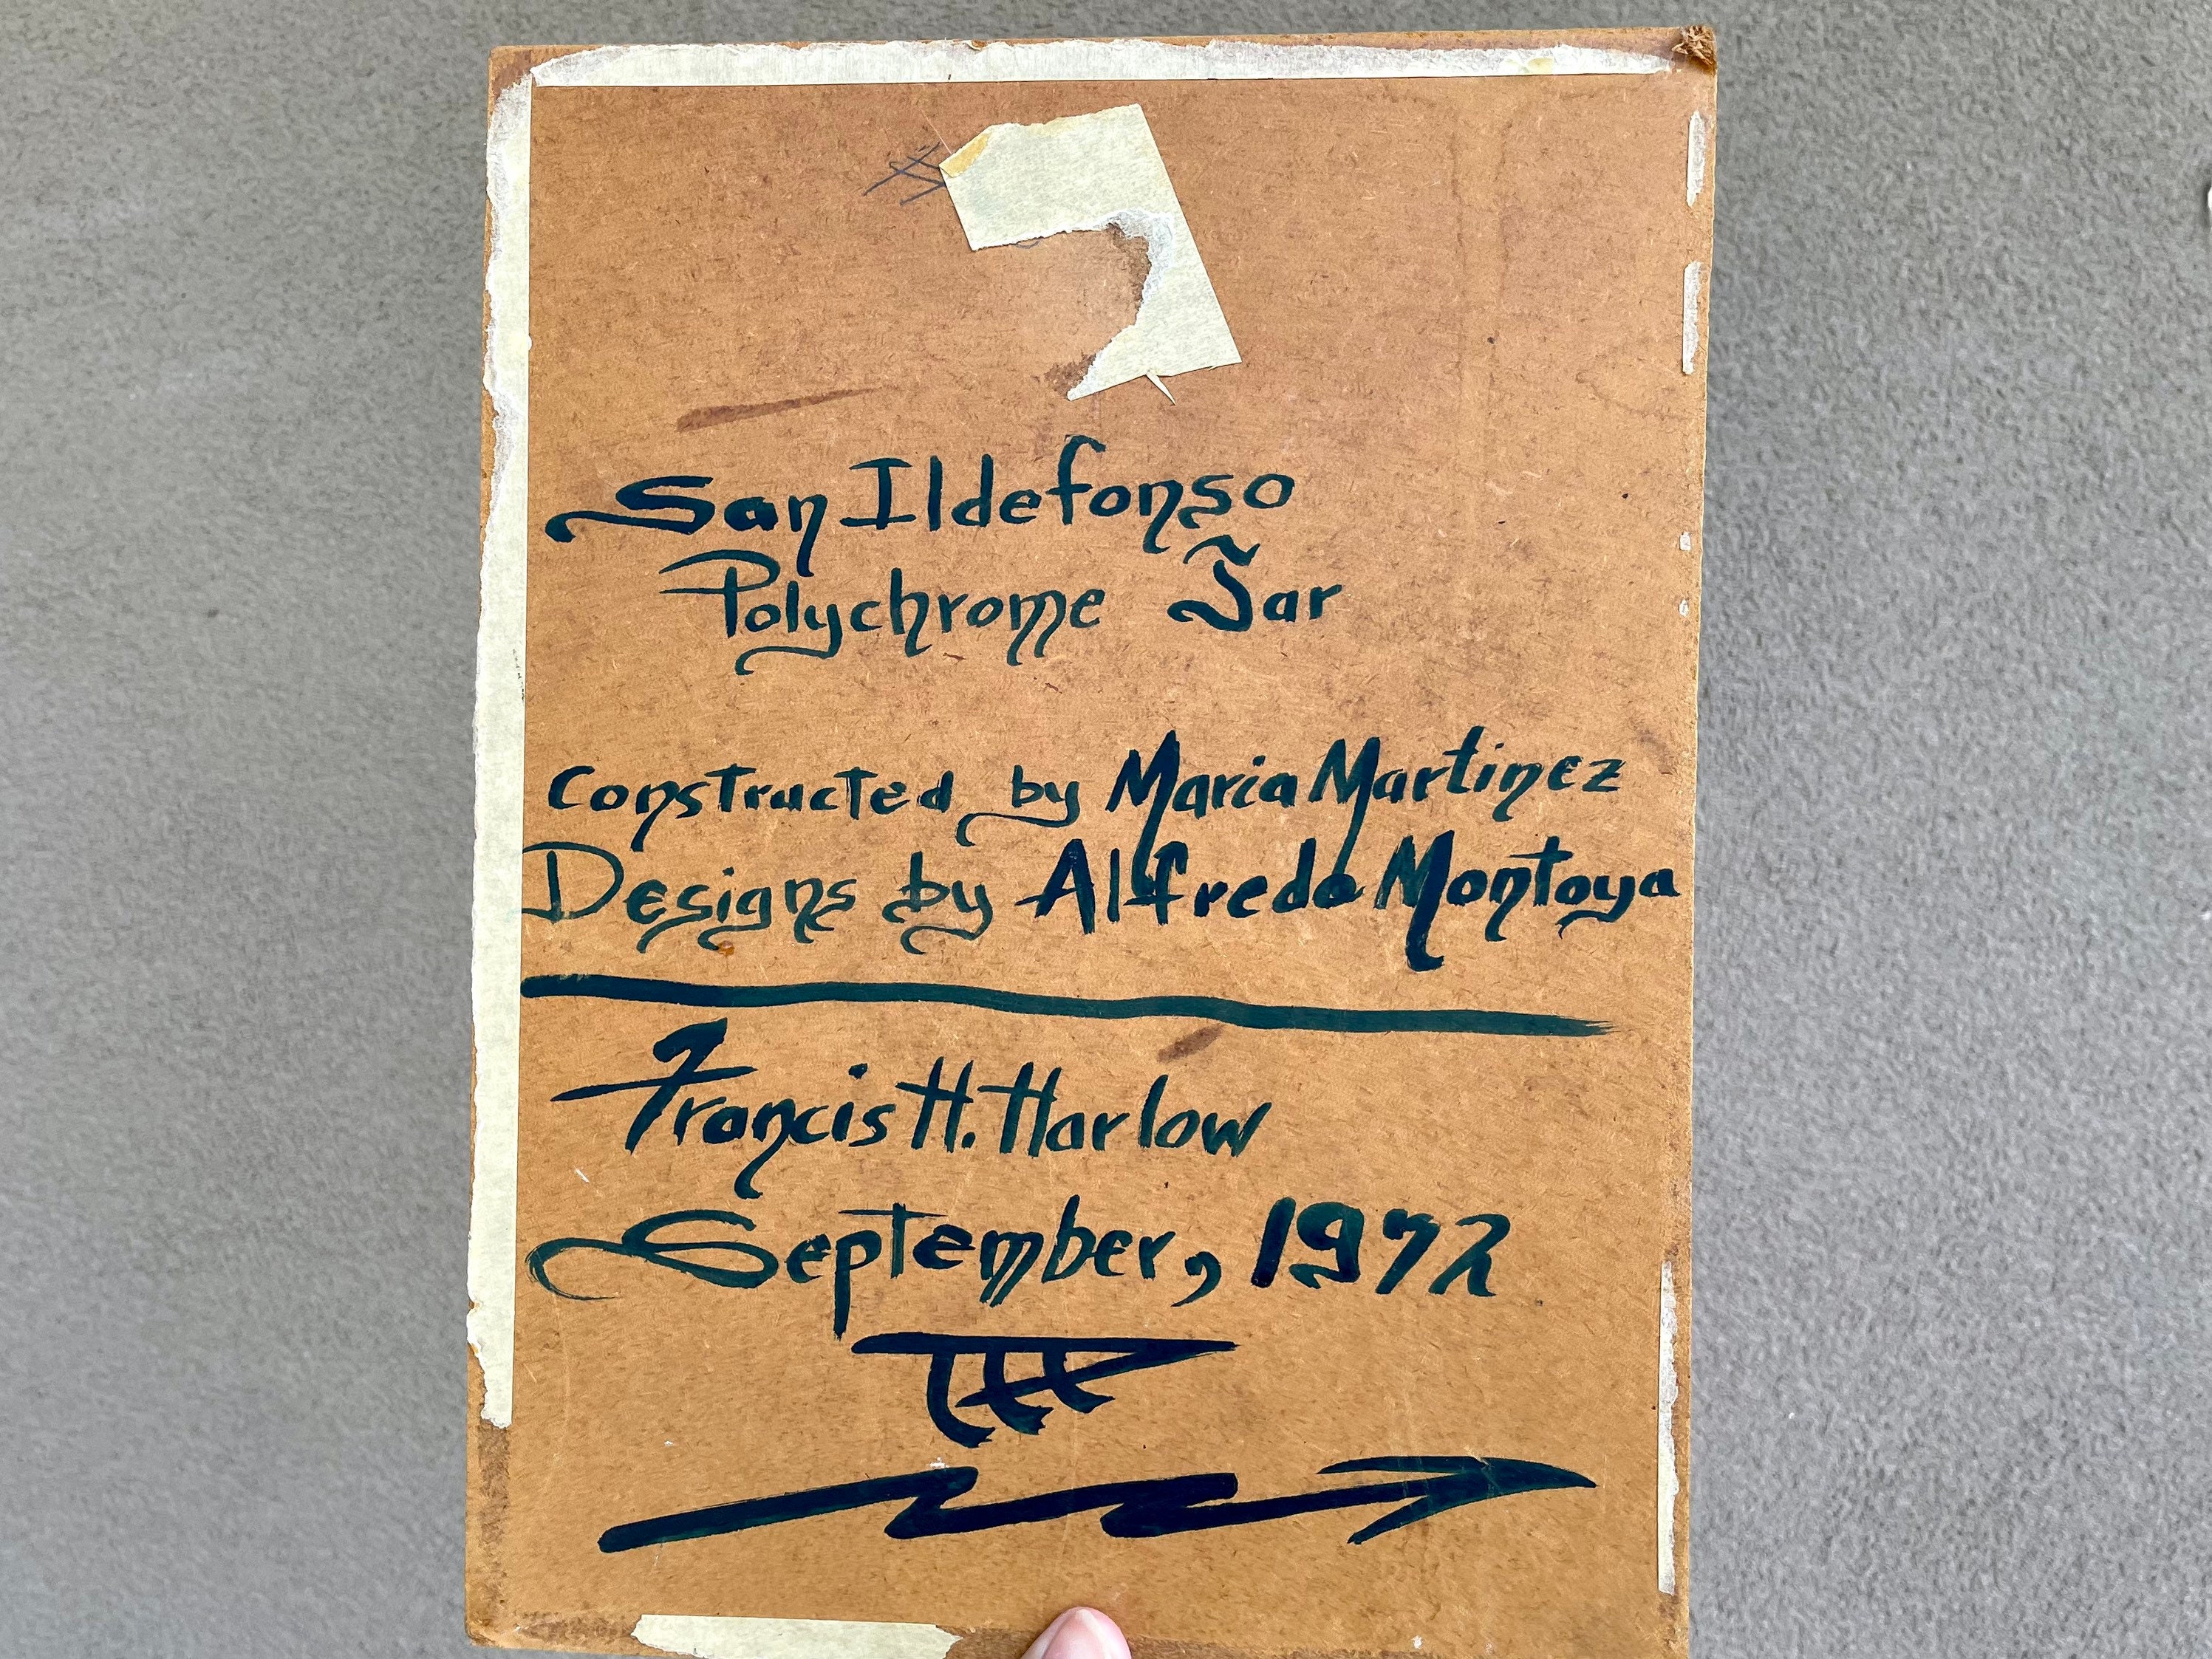 San Ildefonso
Polychrome Jar
Constructed by Maria Martinez
Designs by Alfredo Montoya
Francis H. Harlow
September, 1972